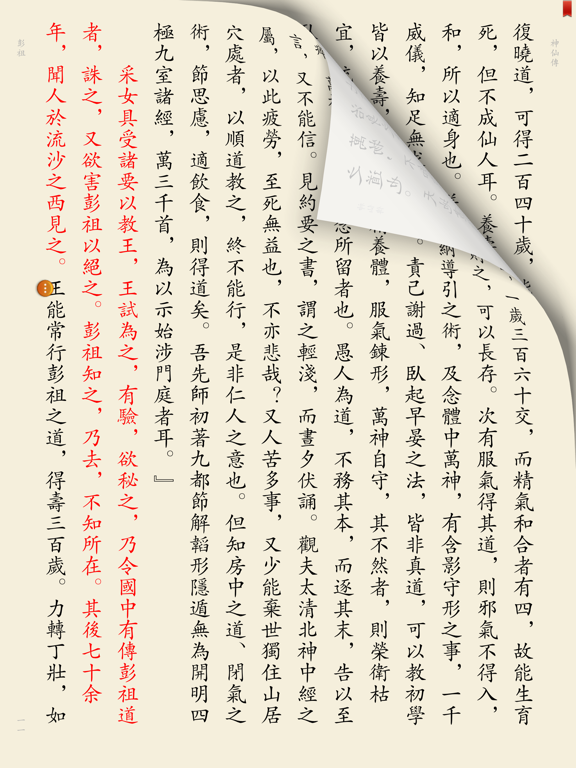 神仙傳
復曉道，可得二百四十歲，一歲三百六十交，而精氣和合者有四，故能生育
死，但不成仙人耳。養之，可以長存。次有服氣得其道，則邪氣不得入，
和，所以適身也。納導引之術，及念體中萬神，有含影守形之事，一千
威儀，知足無。責己謝過、臥起早晏之法，皆非真道，可以教初學
皆以養壽，養體，服氣鍊形，萬神自守，其不然者，則榮衛枯
宜，所留者也。愚人為道，不務其本，而逐其末，告以至
言，又不能信。見約要之書，謂之輕淺，而晝夕伏誦。觀夫太清北神中經之
屬，以此疲勞，至死無益也，不亦悲哉？又人苦多事，又少能棄世獨住山居
穴處者，以順道教之，終不能行，是非仁人之意也。但知房中之道、閉氣之
術，節思慮，適飲食，則得道矣。吾先師初著九都節解韜形隱遁無為開明四
極九室諸經，萬三千首，為以示始涉門庭者耳。』
采女具受諸要以教王，王試為之，有驗，欲秘之，乃令國中有傳彭祖道
者，誅之，又欲害彭祖以絕之。彭祖知之，乃去，不知所在。其後七十余
年，聞人於流沙之西見之。王能常行彭祖之道，得壽三百歲。力轉丁壯，如
彭祖
一一